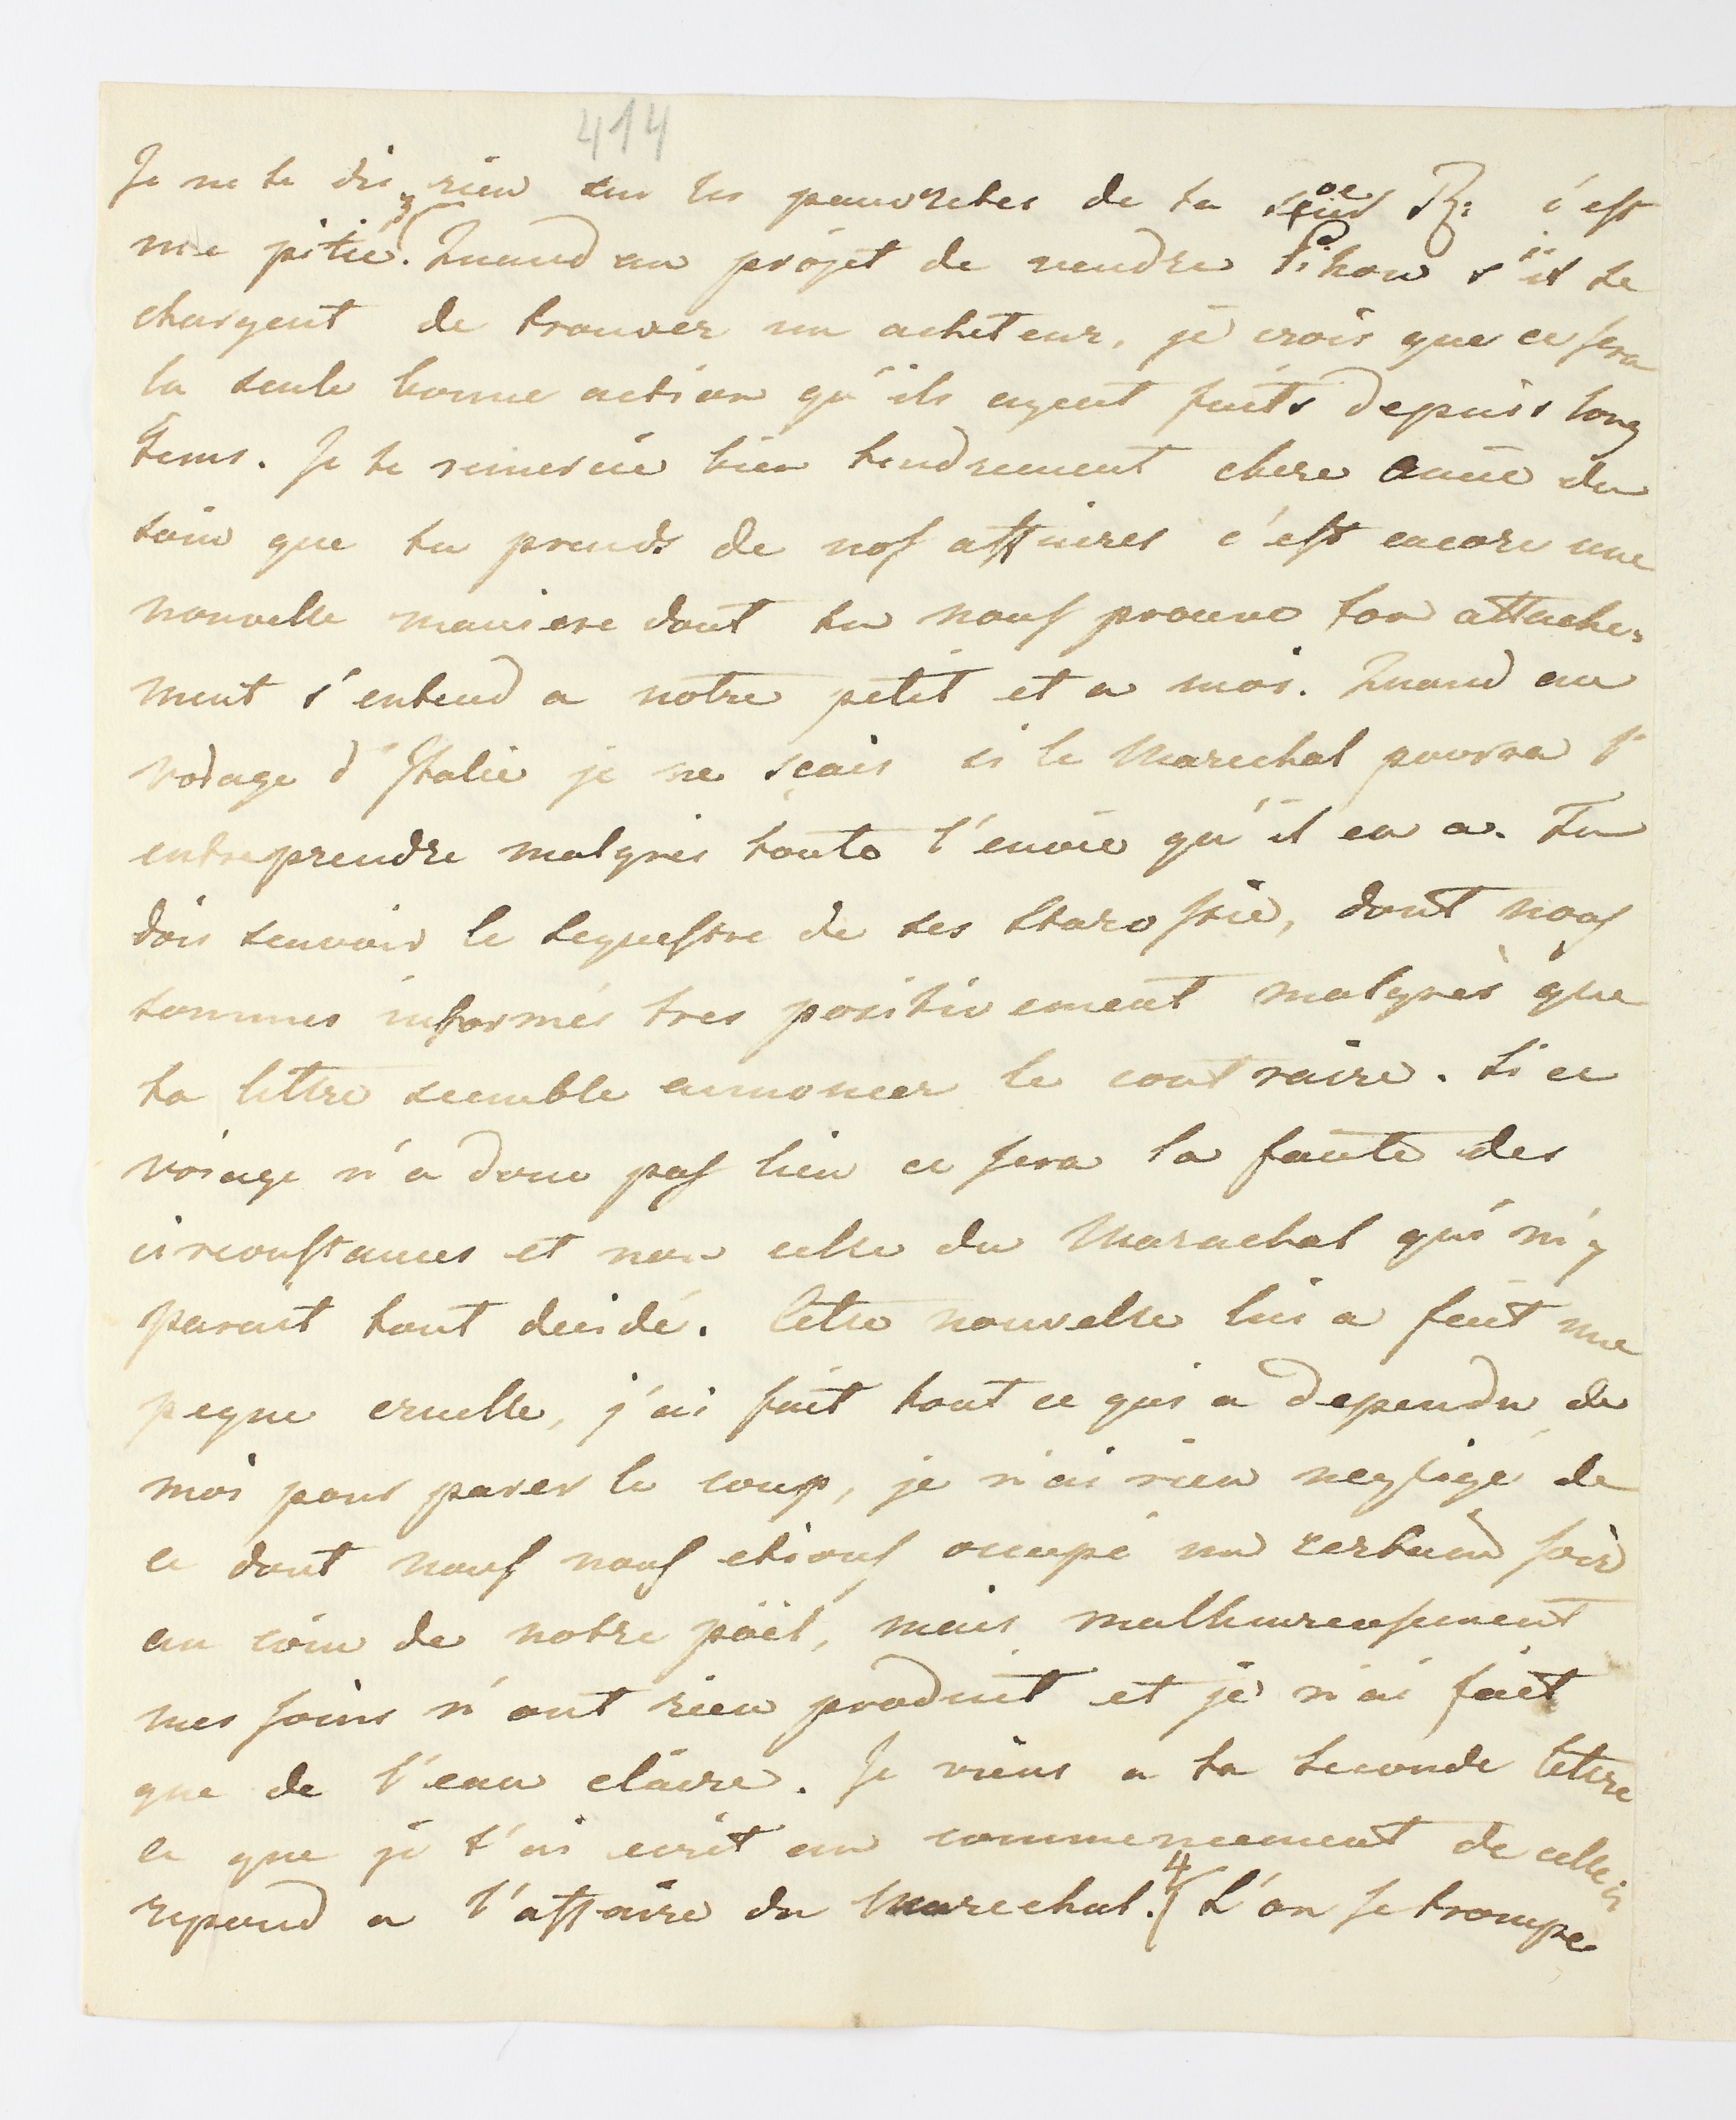 414
Je ne te dis rien sur les pauvretes de ta soeur Rz: c'est
une pitié. 3 Quand au projet de vendre Pikow s'il se
chargent de trouver un acheteur, je crois que ce sera
la seule bonne action qu'ils ayent faits depuis long
tems. Je te remercie bien tendrement chere amie du
soin que tu prends de nos affaires c'est encore une
nouvelle maniere dont tu nous prouve ton attache=
ment s'entend a notre petit et a moi. Quand au
voiage d'Italie je ne sçais si le Marechal pourra l'
entreprendre malgrés toute l'envie qu'il en a. Tu
dois scavoir le sequestre de ses Starostie, dont nous
sommes informés tres positivement malgrès que
ta lettre semble annoncer le contraire. Si ce
voiage n'a donc pas lieu ce sera la faute des
circonstances et non celle du Marachal qui m'y
parait tout decidé. Cette nouvelle lui a fait une
peyne cruelle, j'ai fait tout ce qui a dependu de
moi pour parer le coup, je n'ai rien negligé de
ce dont nous nous etions occupé un certain soir
au coin de notre poël, mais malheureusement
mes soins n'ont rien produit et je n'ai fait
que de l'eau claire. Je viens a ta seconde lettre
ce que je t'ai ecrit au commencement de celle ci
repond a l'affaire du Marechal. 4 L'on se trompe